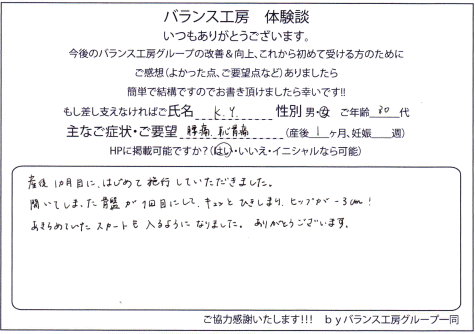 バランス工房　体験談
いつもありがとうございます。
今後のバランス工房グループの改善＆向上、これから初めて受ける方のために
ご感想（よかった点、ご要望点など）ありましたら
簡単で結構ですのでお書き頂けましたら幸いです!!
もし差し支えなければご氏名　K.Y　性別　男・女　ご年齢　30　代
主なご症状・ご要望　腰痛、恥骨痛　（産後　1　ヶ月、妊娠　　週）
HPに掲載可能ですか？（はい・いいえ・イニシャルなら可能）
産後1ヵ月目に、はじめて施行していただきました。
開いてしまった骨盤が1回目にして、キュッとひきしまり、ヒップが-3cm!
あきらめていたスカートも入るようになりました。ありがとうございます。
ご協力感謝いたします!!!　byバランス工房グループ一同